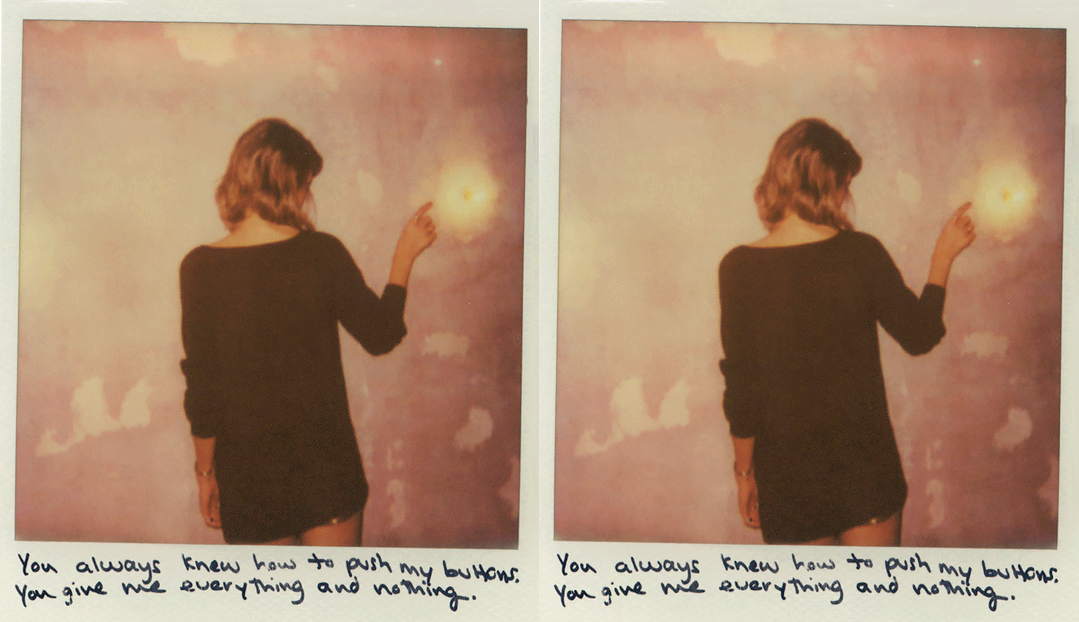 You always knew how to push my buttons.
You give me everything and nothing.
You always knew how to push my buttons.
You give me everything and nothing.